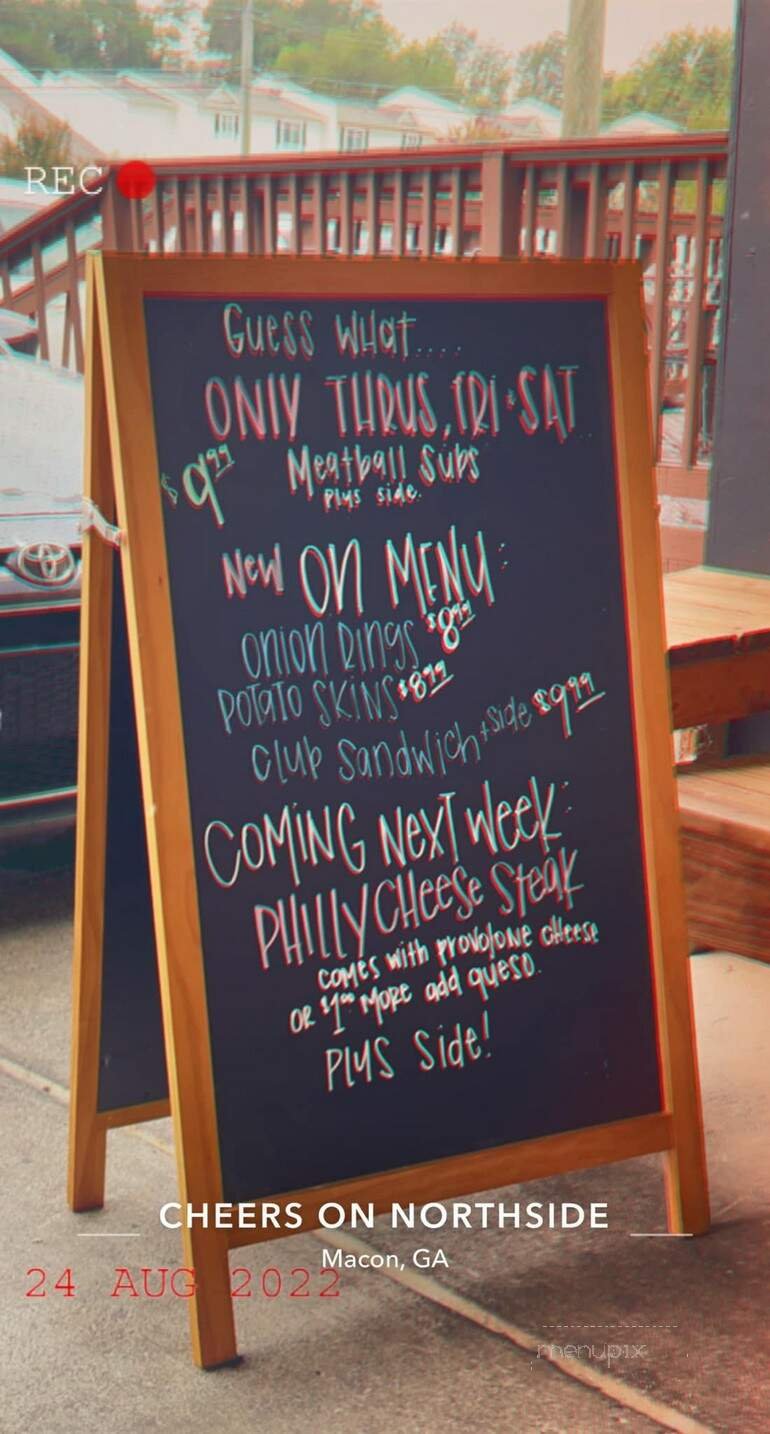 REC
Guess What....
ONLY THRUS, FRI + SAT
$9.99 Meatball Subs
Plus side.
New ON MENU:
ONION RINGS $8.99
POTATO SKINS $8.99
Club Sandwich + side $9.99
COMING NEXT WEEK:
PHILLY CHEESE STEAK
COMES WITH PROVOLONE CHEESE
OR $1.00 MORE add queso.
Plus Side!
CHEERS ON NORTHSIDE
Macon, GA
24 AUG 2022
menupix